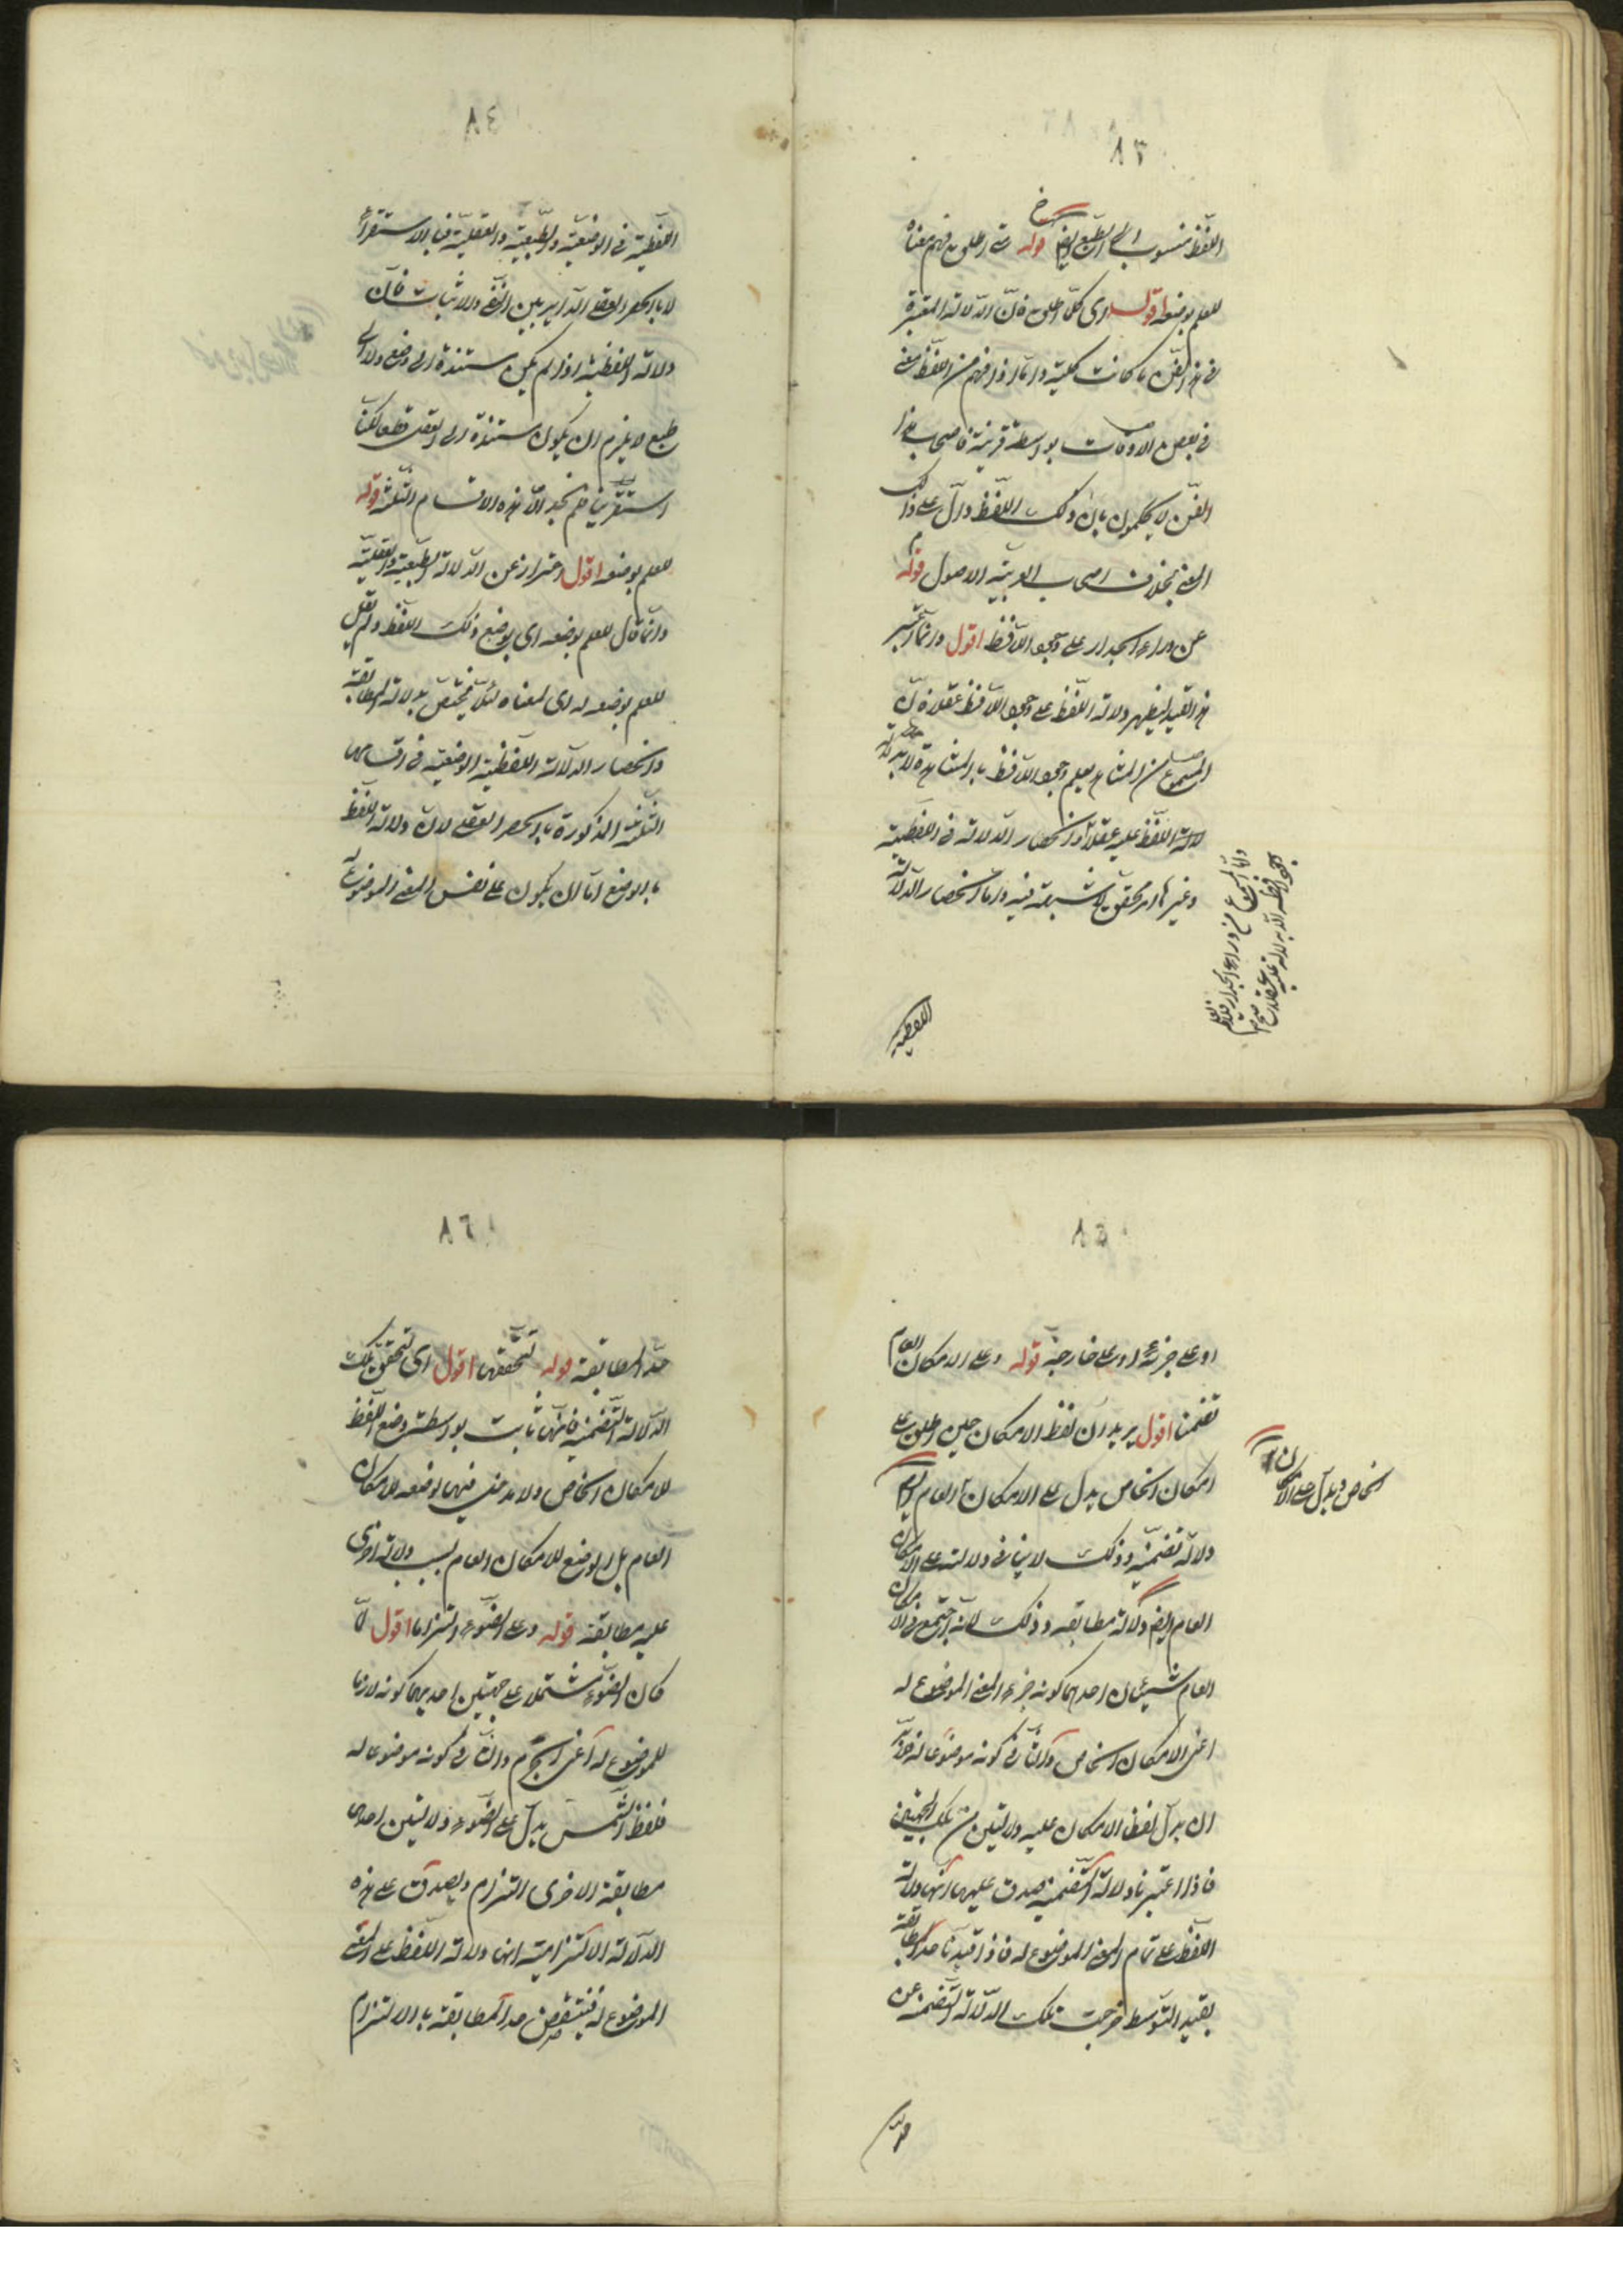 ٨٣
اللفظ منسوب الى الطبع ايضا قوله متى اطلق فهم معناه
للعلم بوضعه اقول اى كلما اطلق فان الدلالة المعتبرة
فى هذا الفن ما كانت كلية واما اذا فهم من اللفظ معنى
فى بعض الاوقات بواسطة قرينة فاصحاب هذا
الفن لا يحكمون بان ذلك اللفظ دال على ذلك
المعنى بخلاف اصحاب العربية والاصول قوله
من وراء الجدار على وجود اللافظ اقول وانما اعتبر
هذا القيد ليظهر دلالة اللفظ على وجود اللافظ عقلا فان
المسموع من المشاهد يعلم وجود اللافظ بالمشاهدة لا بدلالة
اللفظ عليه عقلا وانحصار الدلالة فى اللفظية
وغيرها امر محقق لا شبهة فيه واما انحصار الدلالة
واما المسموع من وراء الجدار فلا يعلم
وجود لافظه الا بدلالة عليه عقلا صح
اللفظية
٨٤
اللفظية فى الوضعية والطبيعية والعقلية فبالاستقراء
لا بالحصر العقلى الدائر بين النفى والاثبات فان
دلالة اللفظية اذا لم يكن مستندة الى وضع ولا الى
طبع لا يلزم ان يكون مستندة الى العقل قطعا لكنا
استقرينا فلم نجد الا هذه الاقسام الثلثة قوله
للعلم بوضعه اقول احتراز عن الدلالة الطبيعية والعقلية
وانما قال للعلم بوضعه اى بوضع ذلك اللفظ ولم يقل
للعلم بوضعه له اى لمعناه لئلا يختص بدلالة المطابقة
وانحصار الدلالة اللفظية الوضعية فى اقسامها
الثلثة المذكورة بالحصر العقلى لان دلالة اللفظ
بالوضع اما ان يكون على نفس المعنى الموضوع له
٨٥
او على جزئه او على خارجه قوله وعلى الامكان العام
تضمنا اقول يريد ان لفظ الامكان حين اطلق على
امكان الخاص يدل على الامكان العام ايضا
دلالة تضمنية وذلك لا ينافى دلالته على الامكان
العام ايضا دلالة مطابقة وذلك لانه اجتمع فى الامكان
العام شيئان احدهما كونه جزء المعنى الموضوع له
اعنى الامكان الخاص والثانى كونه موضوعا له
ان يدل لفظ الامكان عليه دلالتين من تلك الجهتين
فاذا اعتبرنا دلالة التضمنية صدق عليها انها دلالة
اللفظ على تمام المعنى الموضوع له فاذا قيدنا حد المطابقة
بقيد التوسط خرجت تلك الدلالة التضمنية عن
الخاص ويدل على الامكان
حد
٨٦
حد المطابقة قوله لتحققها اقول اى لتحقق تلك
الدلالة التضمنية فانها ثابت بواسطة وضع اللفظ
للامكان الخاص ولا مدخل فيها لوضعه للامكان
العام بل الوضع للامكان العام بسبب دلالة اخرى
عليه مطابقة قوله وعلى الضوء التزاما اقول لما
كان الضوء مشتملا على جهتين احديهما كونه لازما
للموضوع له اعنى الجرم والثانى كونه موضوعا له
فلفظ الشمس يدل على الضوء دلالتين احدهما
مطابقة الاخرى التزام ويصدق على هذه
الدلالة الالتزامية انها دلالة اللفظ على المعنى
الموضوع له فينتقض حد المطابقة بالالتزام